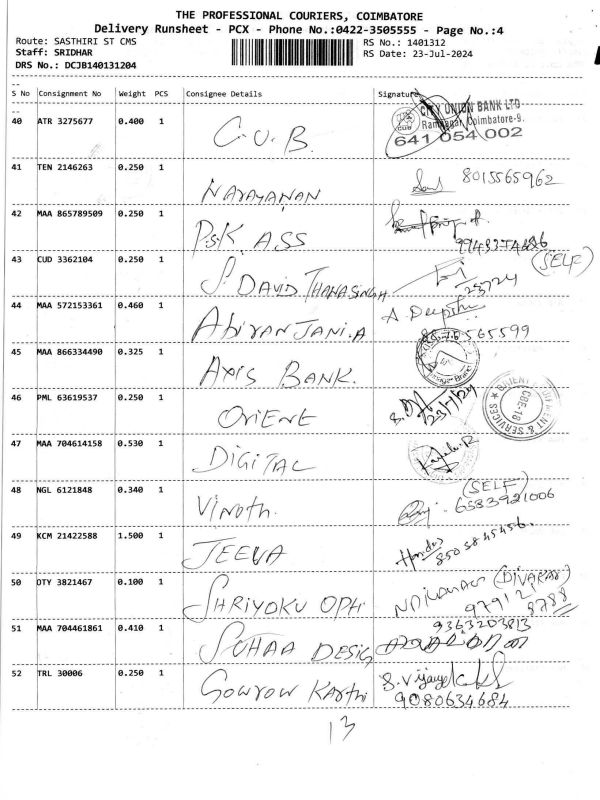 THE PROFESSIONAL COURIERS, COIMBATORE
Delivery Runsheet - PCX - Phone No.:0422-3505555 - Page No.:4
Route: SASTHIRI ST CMS RS No.: 1401312
Staff: SRIDHAR RS Date: 23-Jul-2024
DRS No.: DCJB140131204
S No Consignment No Weight PCS Consignee Details Signature
40 ATR 3275677 0.400 1 C.U.B. CITY UNION BANK LTD
Ramnagar, Coimbatore-9.
641 054 002
41 TEN 2146263 0.250 1 NARAYANAN 8015565962
42 MAA 865789509 0.250 1 P.S.K. ASS
43 CUD 3362104 0.250 1 S. DAVID THANASINGH 23724 (SELF)
44 MAA 572153361 0.460 1 ABIRANJANI.A A. Deepthi
565599
45 MAA 866334490 0.325 1 AXIS BANK.
46 PML 63619537 0.250 1 ORIENT 23/7/24
CBE-18
& SERVICES
47 MAA 704614158 0.530 1 DIGITAL
48 NGL 6121848 0.340 1 Vinoth. (SELF)
6383921006
49 KCM 21422588 1.500 1 JEEVA 850 38 45456.
50 OTY 3821467 0.100 1 SHRIYOKU OPH (DIVAKAR)
97912
8788
51 MAA 704461861 0.410 1 SUHAA DESIG 9363203813
52 TRL 30006 0.250 1 Gowrow Karthi S. Vijay
9080634684
13